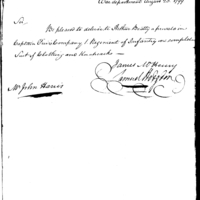 War department August 20 1799
Sir
Be pleased to deliver to Arthur Beatty a private in
Captain Company 1 Regiment of Infantry a complete
Suit of Clothing and
James McHenry
Samuel Hodgdon
Mr John Harris